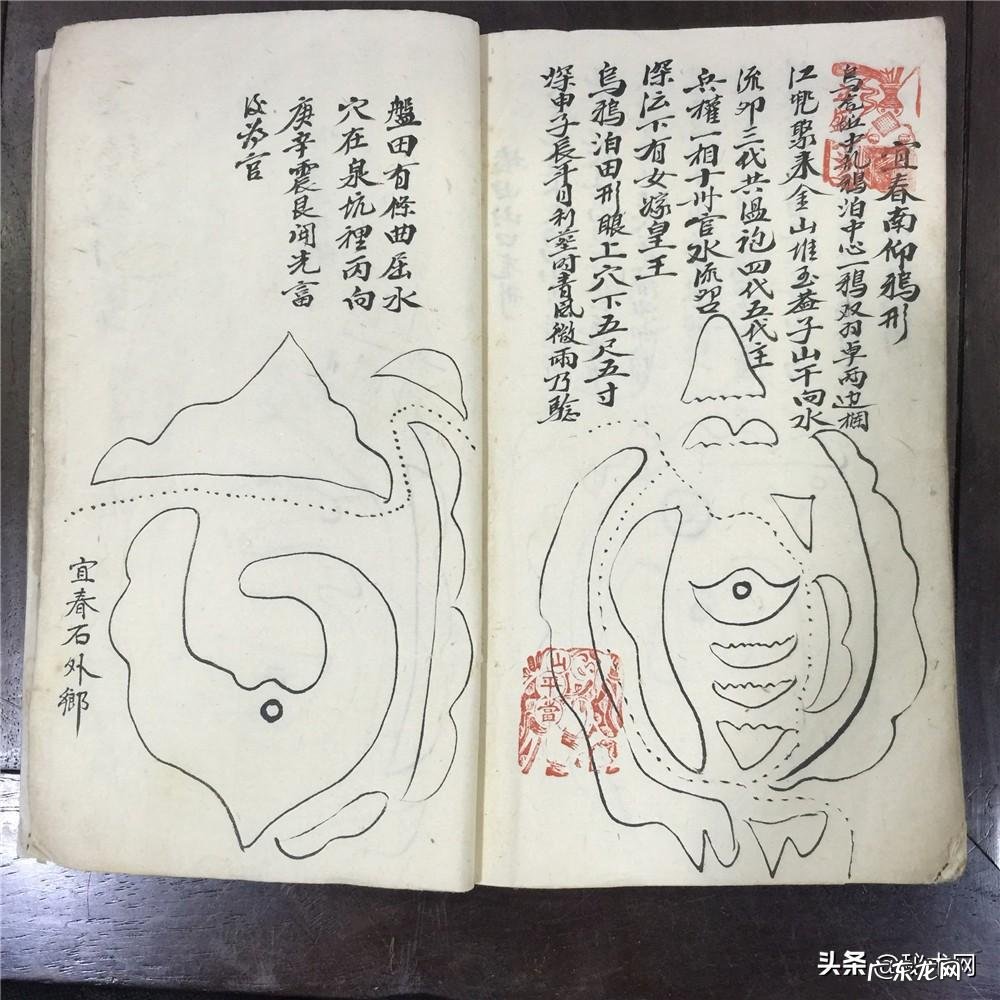 宜春南仰鴉形
烏石丘中孔鴉泊中心一鴉双羽卓兩边欄
江兜聚来金山堆玉益子山干向水
流卯三代共温袍四代五代主
兵權一相十州官水流
深坛下有女嫁皇王
烏鴉泊田形眼上穴下五尺五寸
深申子辰年月利塟时青風微雨乃騐
山平當
盤田有條曲屈水
穴在泉坑裡丙向
庚辛震艮闭先富
後为官
宜春石外鄉
头条
广东龙网